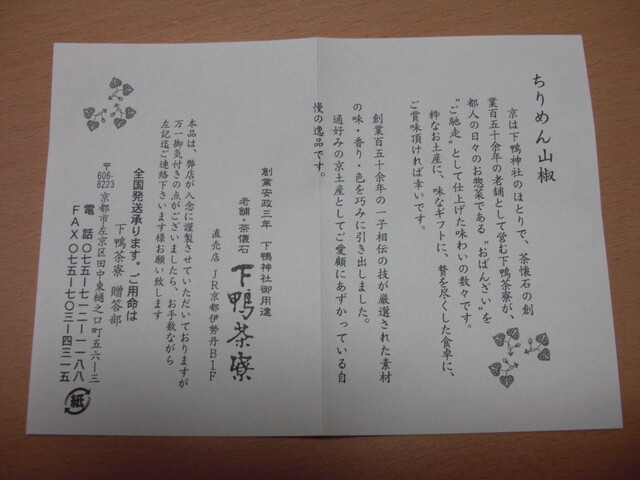 ちりめん山椒
京は下鴨神社のほとりで、茶懐石の創
業百五十余年の老舗として営む下鴨茶寮が、
都人の日々のお惣菜である〝おばんざい〟を
〝ご馳走〟として仕上げた味わいの数々です。
粋なお土産に、味なギフトに、贅を尽くした食卓に、
ご賞味頂ければ幸いです。
創業百五十余年の一子相伝の技が厳選された素材
の味・香り・色を巧みに引き出しました。
通好みの京土産としてご愛顧にあずかっている自
慢の逸品です。
創業安政三年 下鴨神社御用達
老舗・茶懐石 下鴨茶寮
直売店 JR京都伊勢丹B1F
本品は、弊店が入念に謹製させていただいておりますが
万一御気付きの点がございましたら、お手数ながら
左記迄ご連絡下さいます様お願い致します
全国発送承ります。ご用命は
下鴨茶寮 贈答部
〒606-8223 京都市左京区田中東樋之口町五六―三
電 話〇七五―七一二―一一八八
FAX〇七五―七〇三―四三一五
紙